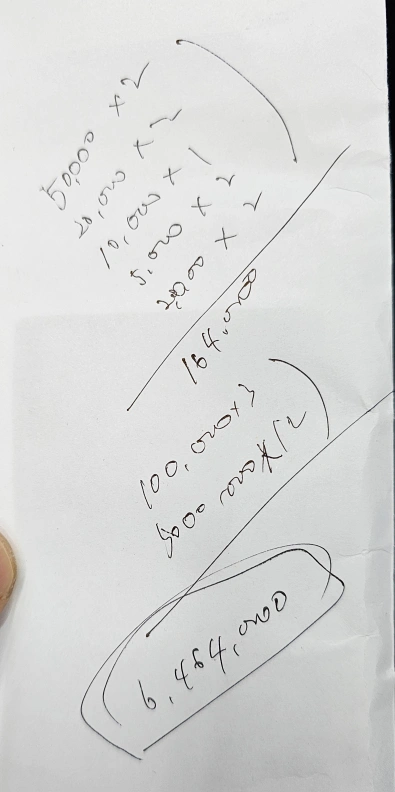 50,000 × 2
20,000 × 2
10,000 × 1
5,000 × 2
2,000 × 2
164,000
100,000 × 3
500,000 × 12
6,464,000